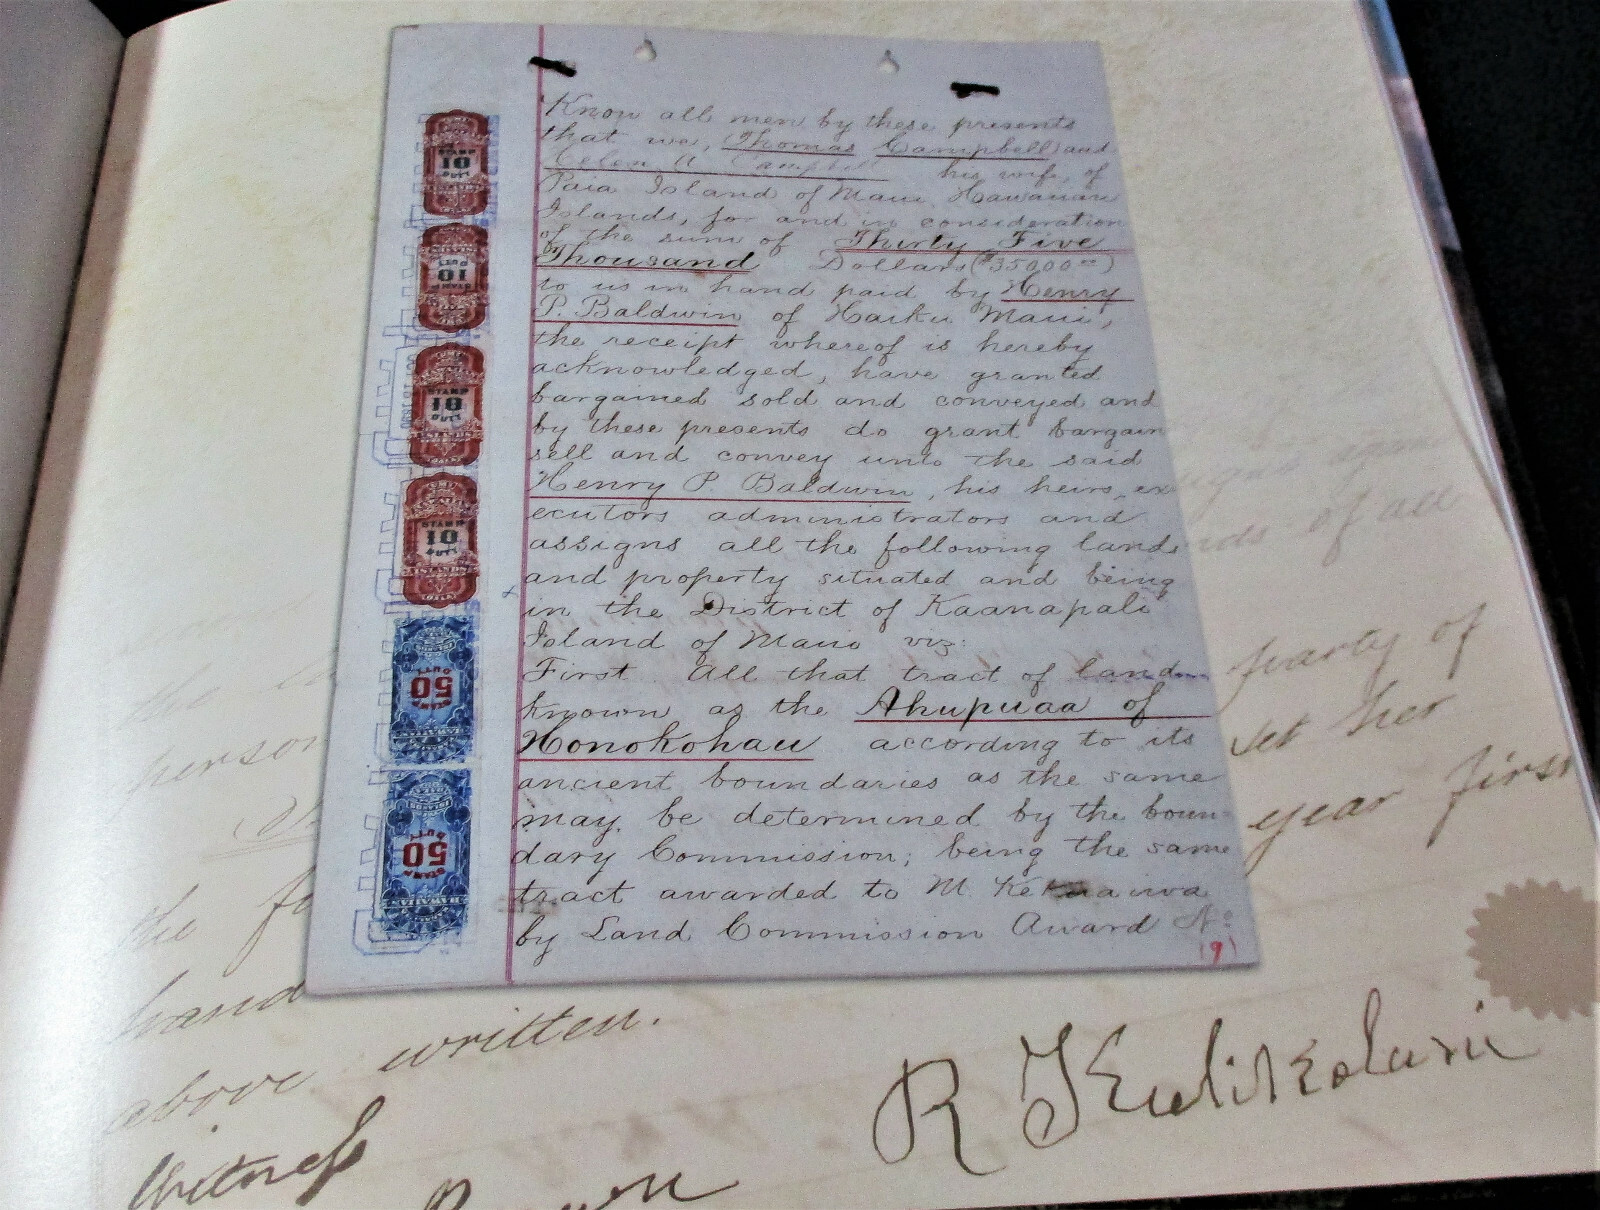 Know all men by these presents
that we, Thomas Campbell and
Campbell his wife, of
Paia Island of Maui Hawaiian
Islands, for and in consideration
of the sum of Thirty Five
Thousand Dollars ($35000.00)
to us in hand paid by Henry
P. Baldwin of Haiku Maui,
the receipt whereof is hereby
acknowledged, have granted
bargained sold and conveyed and
by these presents do grant bargain
sell and convey unto the said
Henry P. Baldwin, his heirs, ex
ecutors administrators and
assigns all the following lands
and property situated and being
in the District of Kaanapali
Island of Maui viz:
First. All that tract of land
known as the Ahupuaa of
Honokohau according to its
ancient boundaries as the same
may be determined by the boun-
dary Commission; being the same
tract awarded to M Kekuaiwa
by Land Commission Award No
(9)
STAMP
10
DUTY
STAMP
10
DUTY
STAMP
10
DUTY
ISLANDS
STAMP
10
DUTY
ISLANDS
STAMP
50
DUTY
HAWAIIAN
ISLANDS
STAMP
50
DUTY
HAWAIIAN
ISLANDS
of all
the la
party of
person
set her
year first
the fo
hand
above written.
R Keelikolani
Witness